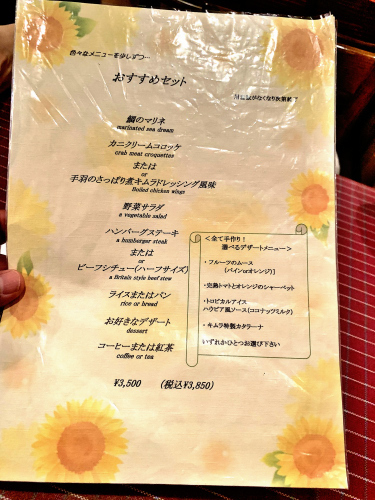 色々なメニューを少しずつ…
おすすめセット
がなくなり次第終了
鯛のマリネ
marinated sea dream
カニクリームコロッケ
crab meat croquettes
または
or
手羽のさっぱり煮キムラドレッシング風味
Boiled chicken wings
野菜サラダ
a vegetable salad
ハンバーグステーキ
a humburger steak
または
or
ビーフシチュー(ハーフサイズ)
a Britain style beef stew
ライスまたはパン
rice or bread
お好きなデザート
dessert
コーヒーまたは紅茶
coffee or tea
¥3,500 (税込¥3,850)
＜全て手作り！
選べるデザートメニュー＞
・フルーツのムース
[パインorオレンジ]
・完熟トマトとオレンジのシャーベット
・トロピカルアイス
ハウピア風ソース(ココナックミルク)
・キムラ特製カタラーナ
いずれかひとつお選び下さい